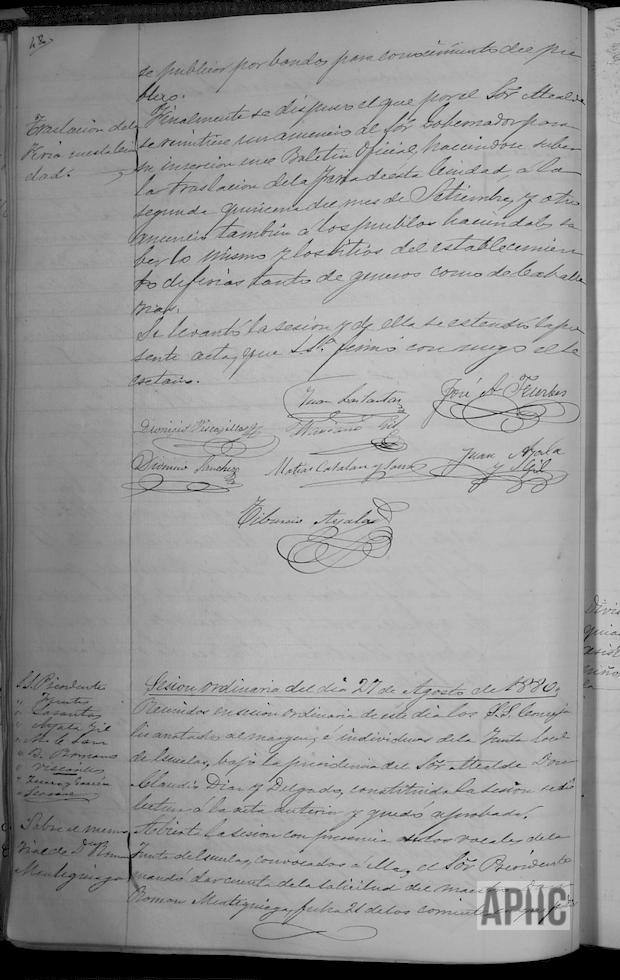 48.
se publicó por bandos para conocimiento del pue-
blo.
Traslacion de la
Feria en esta Ciu
dad.
Finalmente se dispuso el que por el Sor Alcalde
se remitiese un anuncio al Sor Gobernador para
su insercion en el Boletin Oficial, haciendose saber
la traslacion de la Feria de esta Ciudad, á la
segunda quincena del mes de Setiembre, y otro
anuncio tambien á los pueblos haciendoles sa
ber lo mismo y los sitios del establecimien
to de ferias tanto de generos como de Caballe
rias.
Se levantó la sesion y de ella se estendió la pre
sente acta, que S.S. firmó con migo el Se
cretario.
Juan Santos
José A. Fuertes
Dionicio
Mariano Gil
Dionicio Sanchez
Matias Catalan y Sanz
Juan Ayala
y Gil
Tiburcio Ayala
S.S. Presidente
" Santos
" Ayala Gil
" M. C. Sanz
" D. Romano
Sesion ordinaria del dia 27 de Agosto de 1880.
Reunidos en sesion ordinaria de este dia los S.S. Conceja
les anotados al margen, é individuos de la Junta Local
de Escuelas, bajo la presidencia del Sor Alcalde Don
Claudio Diaz y Delgado, constituida la sesion se dió
lectura á la acta anterior y quedó aprobada.
Sobre el memo
rial de Dn Roman
Mantequiaga
Abierta la sesion con presencia de los vocales de la
Junta de Escuelas, convocados á ella, el Sor Presidente
mandó dar cuenta de la solicitud del maestro Don
Roman Mantequiaga, fecha 21 de los corrientes
APHC